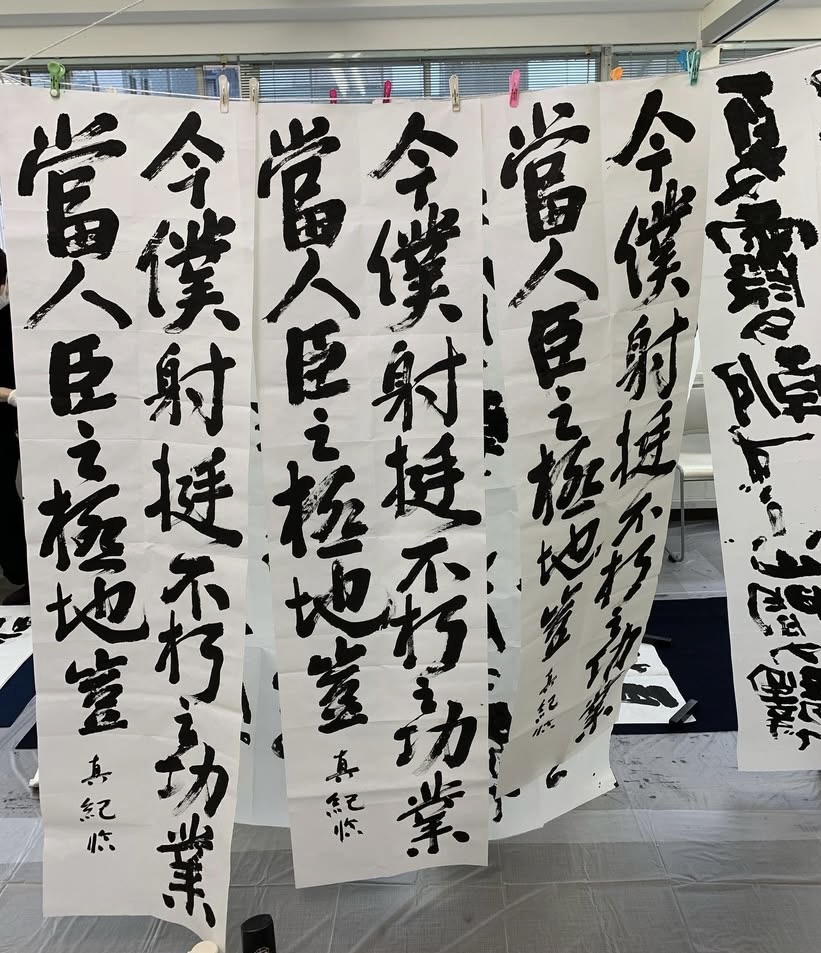 今僕射挺不朽之功業
當人臣之極地豈
真紀臨
今僕射挺不朽之功業
當人臣之極地豈
真紀臨
今僕射挺不朽之功業
當人臣之極地豈
真紀臨